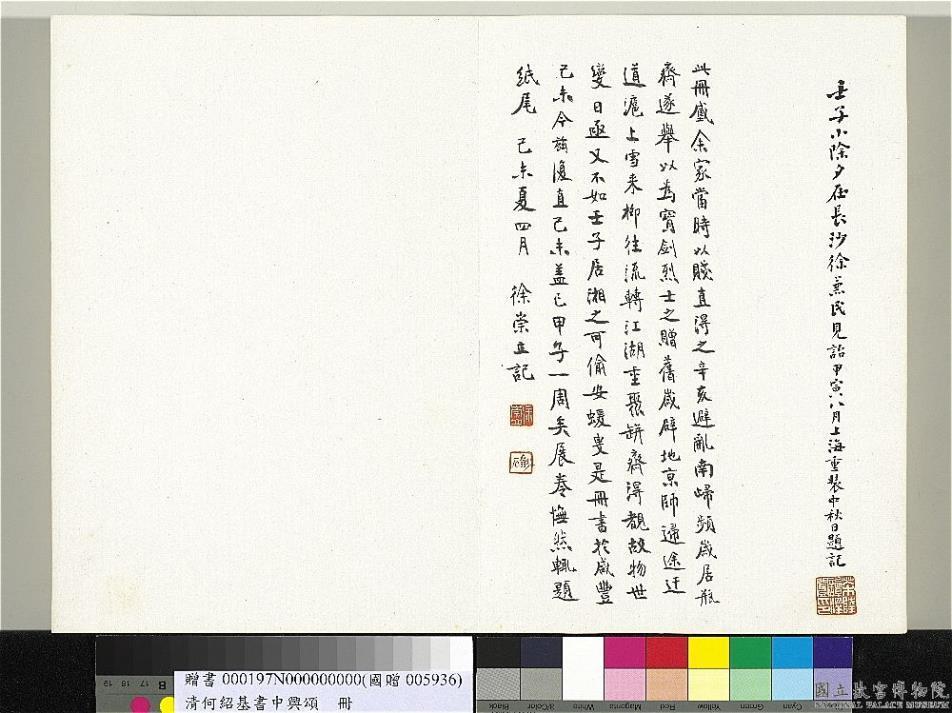 壬子小除夕在長沙徐叔民見詒甲寅八月上海重裝中秋日題記
此冊舊余家當時以賤直得之辛亥避亂南歸頻歲居瓶
齋遂舉以為寶劍烈士之贈舊歲辟地京師歸途迂
道滬上雪來柳往流轉江湖重聚缾齋得觀故物世
變日亟又不如壬子居湘之可偷安緩叟是冊書於咸豐
己未今茲復直己未蓋已甲子一周矣展卷憮然輒題
紙尾 己未夏四月 徐崇立記
贈書 000197N000000000(國贈 005936)
清何紹基書中興頌 冊
19 18 17 16 B
Black 3/Color White Magenta Red Yellow Green Cyan Blue
國立故宮博物院
NATIONAL PALACE MUSEUM